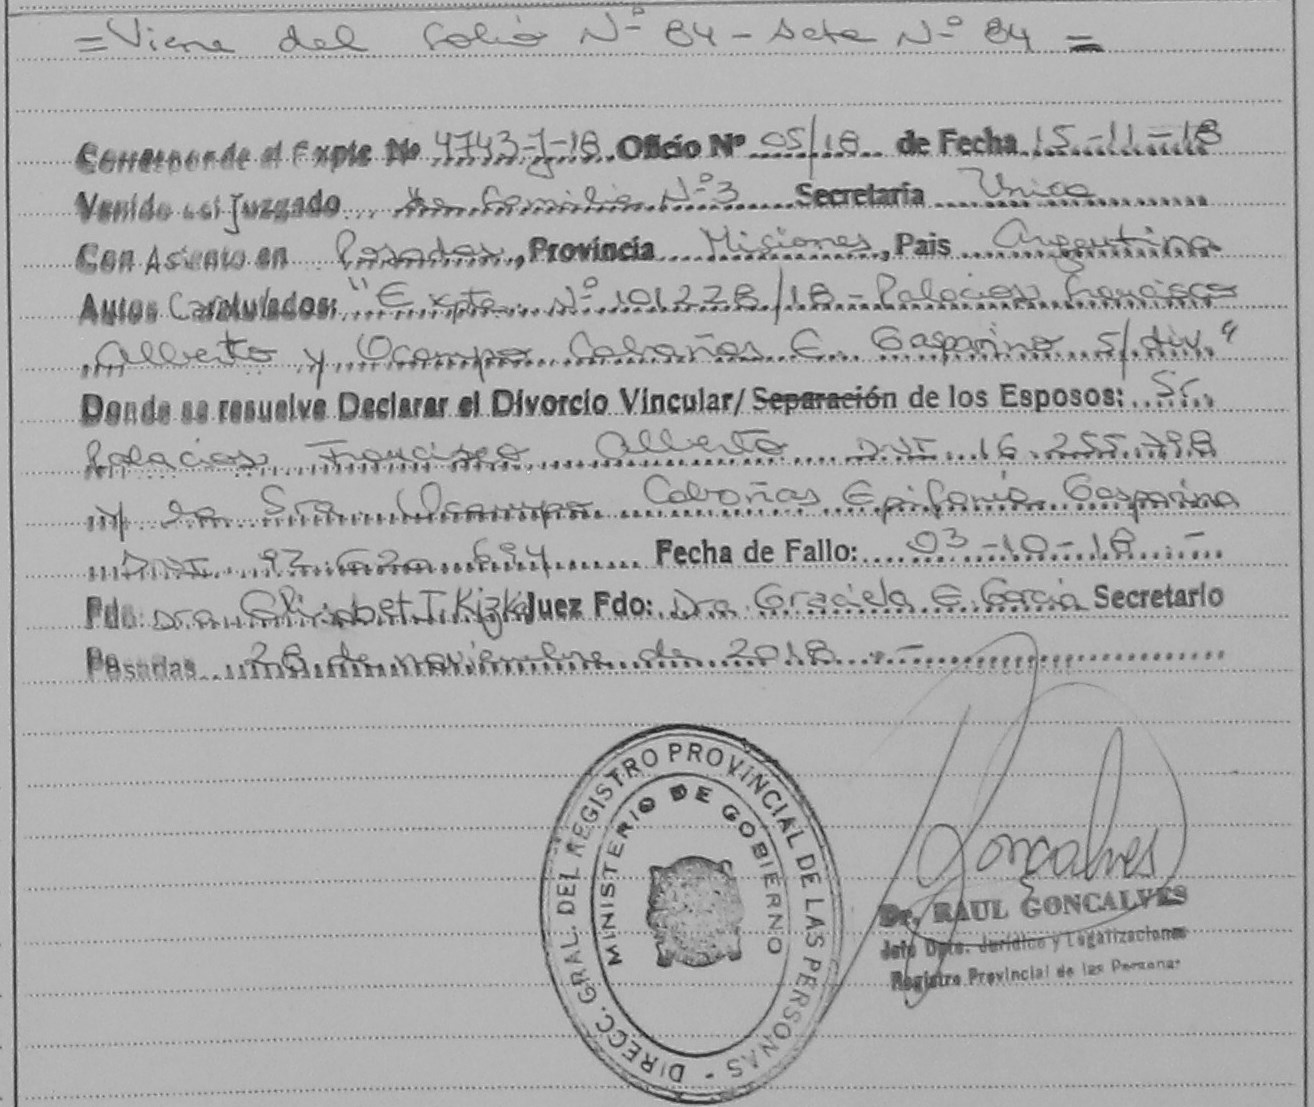 = Viene del folio Nº 84 - Acta Nº 84 =
Corresponde al Expte Nº 4743-J-18 Oficio Nº 05/18 de Fecha 15-11-18
Venido del Juzgado de Familia Nº 3 Secretaría Unica
Con Asiento en Posadas, Provincia Misiones, Pais Argentina
Autos Caratulados: "Expte. Nº 101228/18 - Palacios Francisco
Alberto y Ocampo Cabañas E. Gasparina s/ div."
Donde se resuelve Declarar el Divorcio Vincular/ Separación de los Esposos: Sr.
Palacios, Francisco Alberto DNI 16.255.798
y la Sra. Ocampo Cabañas Epifania Gasparina
DNI 92.620.694 Fecha de Fallo: 03-10-18.-
Fdo: Dra. Elisabet T. Kizka Juez Fdo: Dra. Graciela E. Garcia Secretario
Posadas 28 de noviembre de 2018.-
DIRECC. GRAL. DEL REGISTRO PROVINCIAL DE LAS PERSONAS -
MINISTERIO DE GOBIERNO
Gonçalves
Dr. RAUL GONCALVES
Jefe Dpto. Jurídico y Legalizaciones
Registro Provincial de las Personas